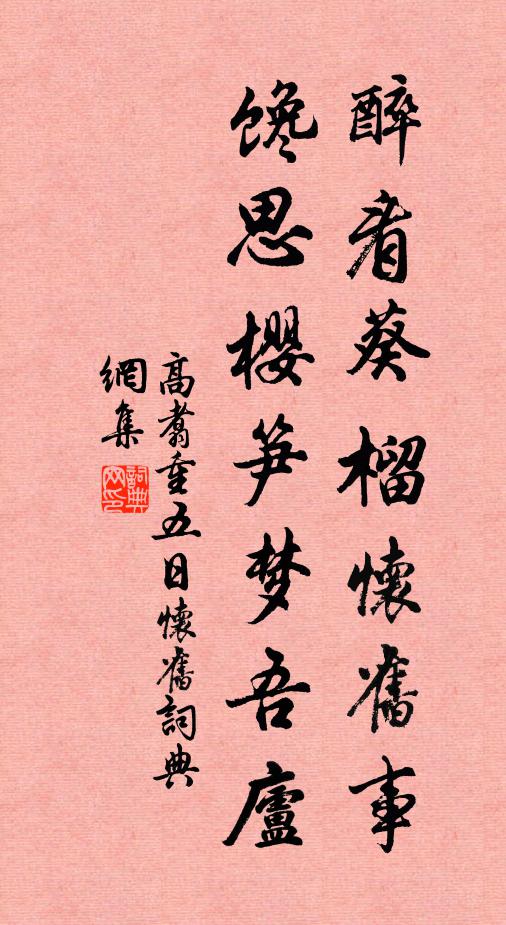 醉看葵榴懷舊事
馋思櫻笋梦吾廬
高翥重五日懷舊詞典
網集
詞典網印